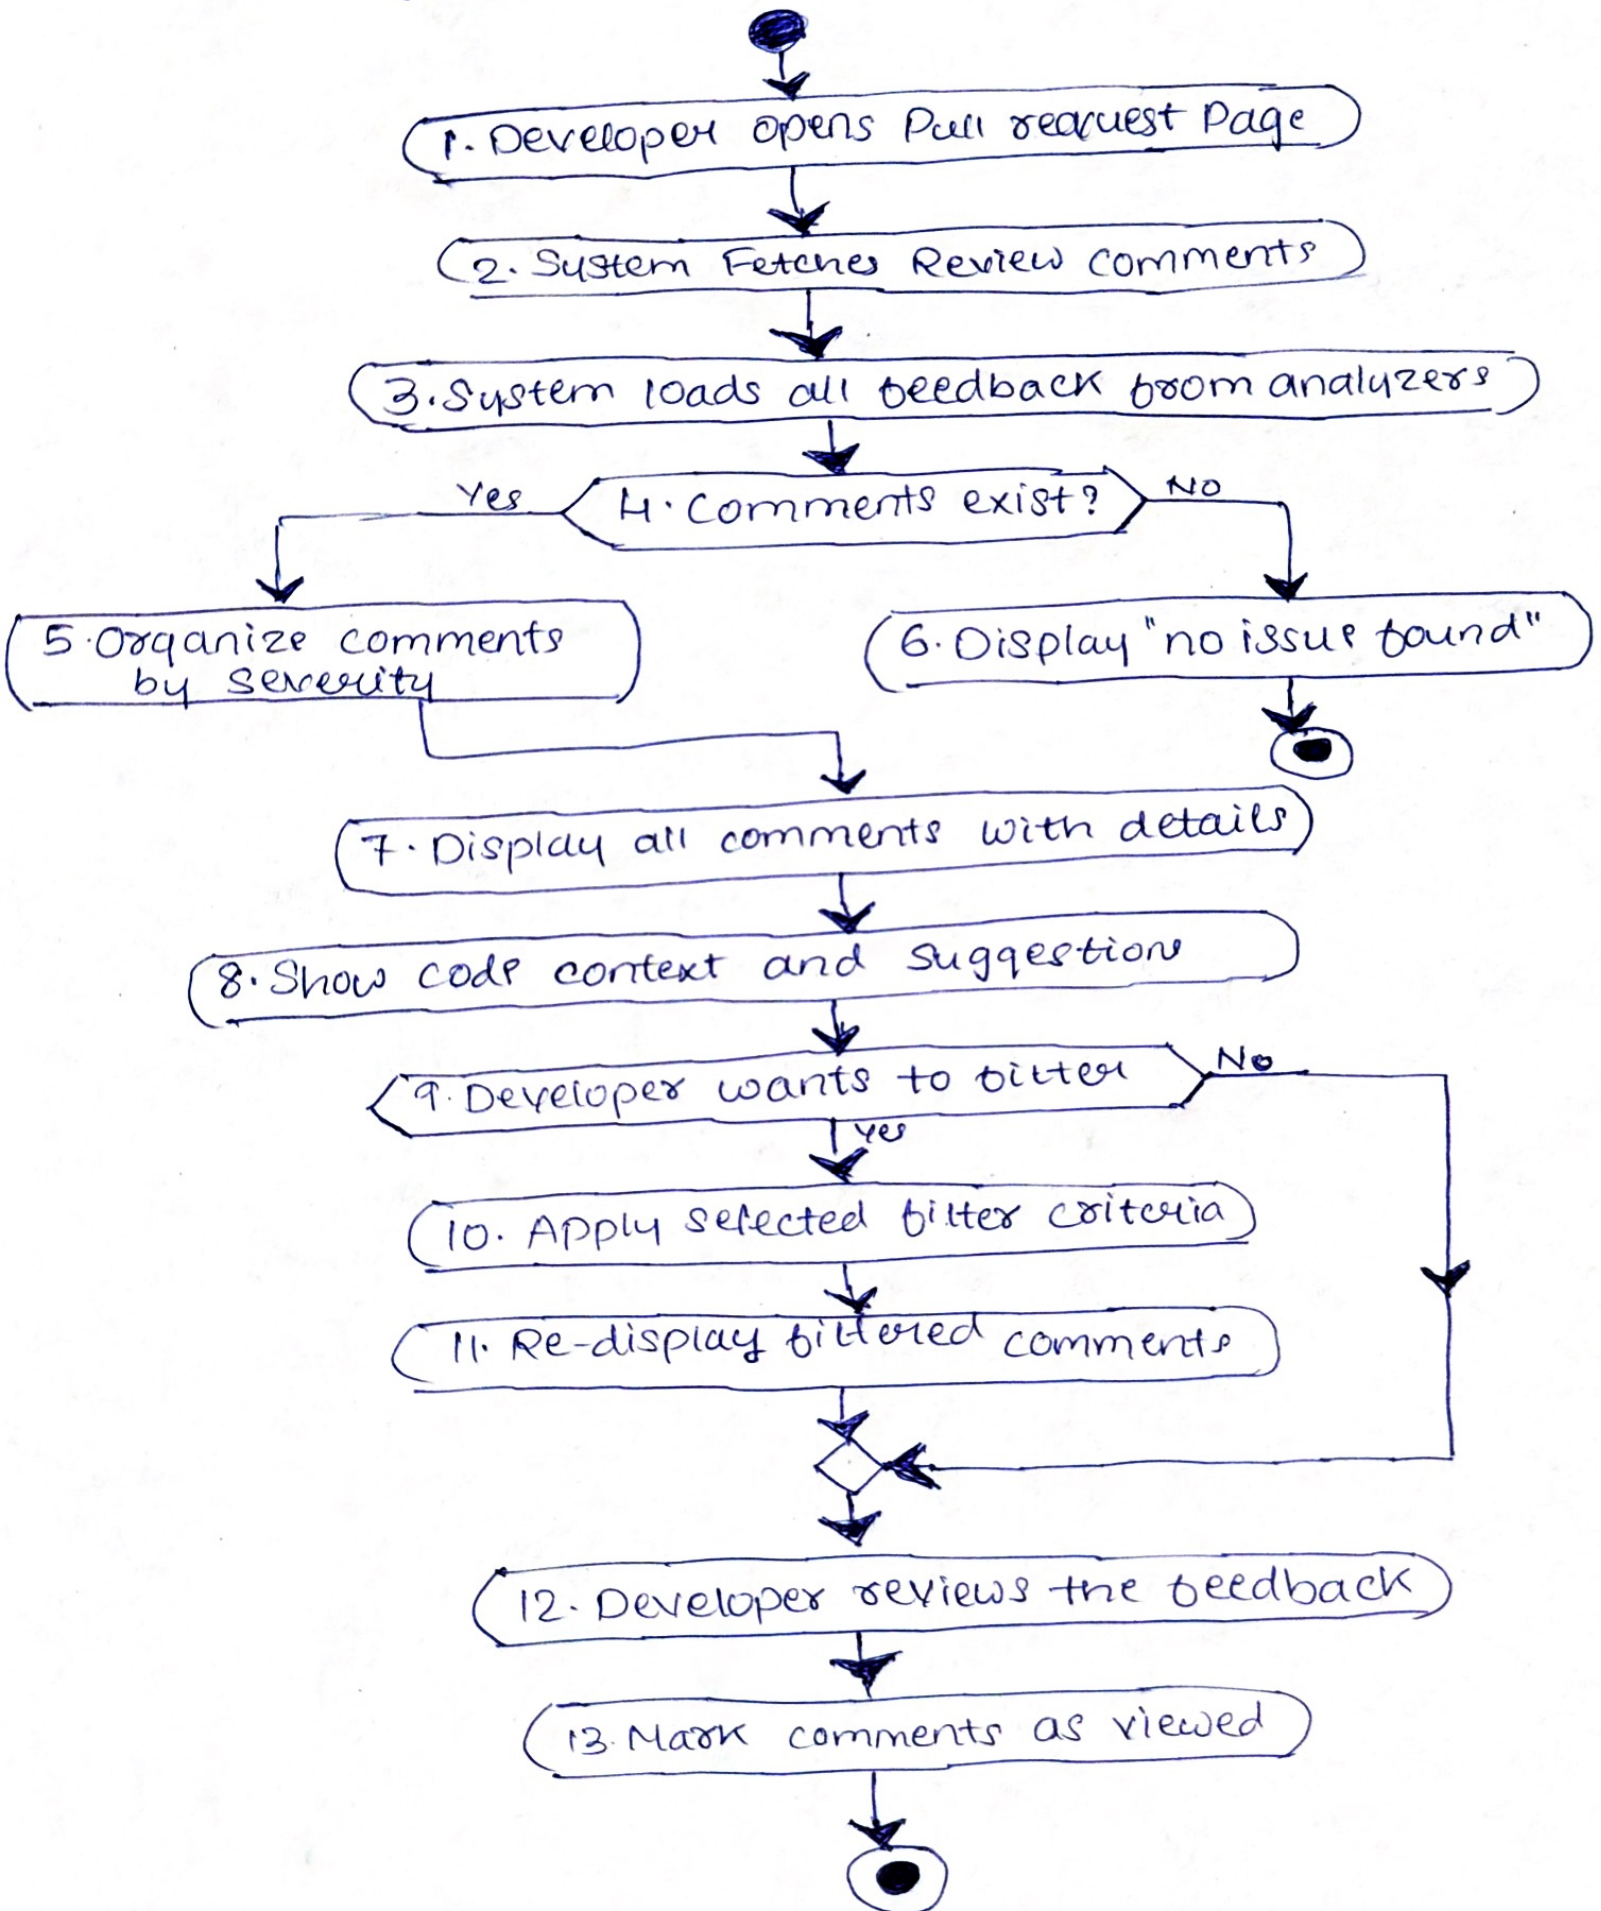 1. Developer opens Pull request Page
2. System Fetches Review comments
3. System loads all feedback from analyzers
4. Comments exist?
Yes
NO
5. Organize comments
by severity
6. Display "no issue found"
7. Display all comments with details
8. Show code context and suggestions
9. Developer wants to filter
No
Yes
10. Apply selected filter criteria
11. Re-display filtered comments
12. Developer reviews the feedback
13. Mark comments as viewed